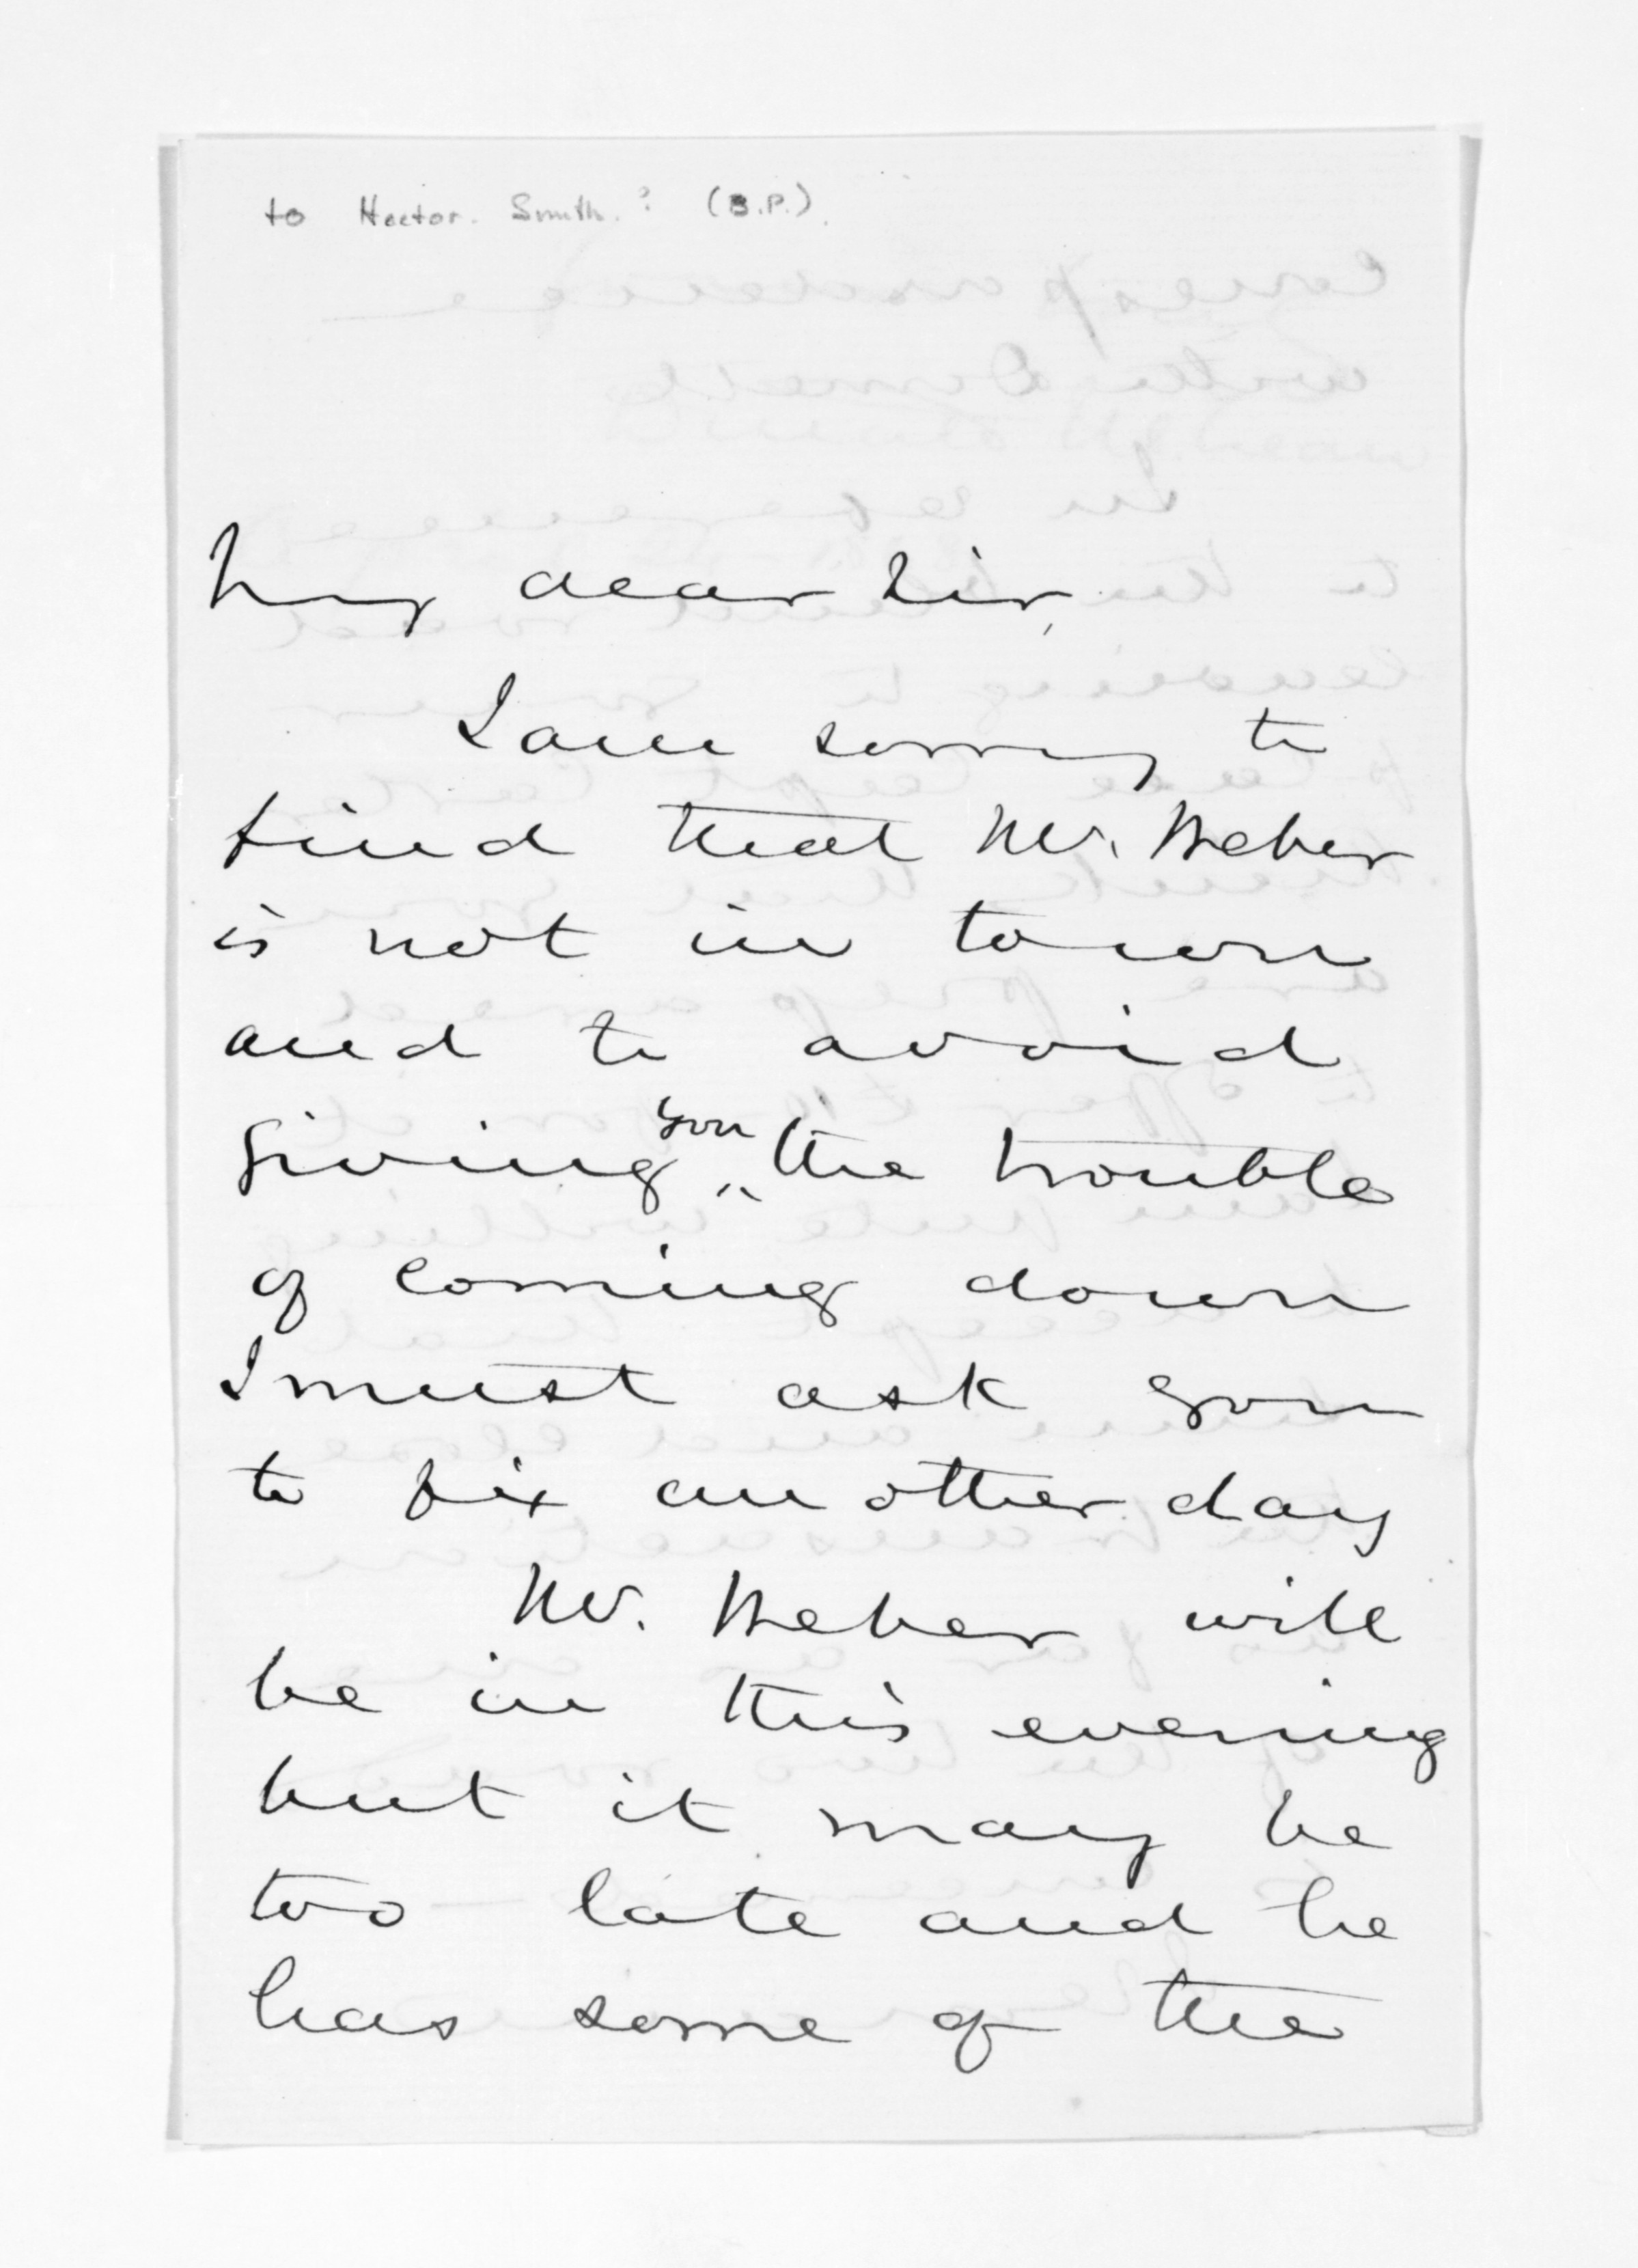 to Hector. Smith.? (B.P.).
My dear Sir,
I am sorry to
find that Mr. Weber
is not in town
and to avoid
giving you the trouble
of coming down
I must ask you
to fix another day
Mr. Weber will
be in this evening
but it may be
too late and he
has some of the